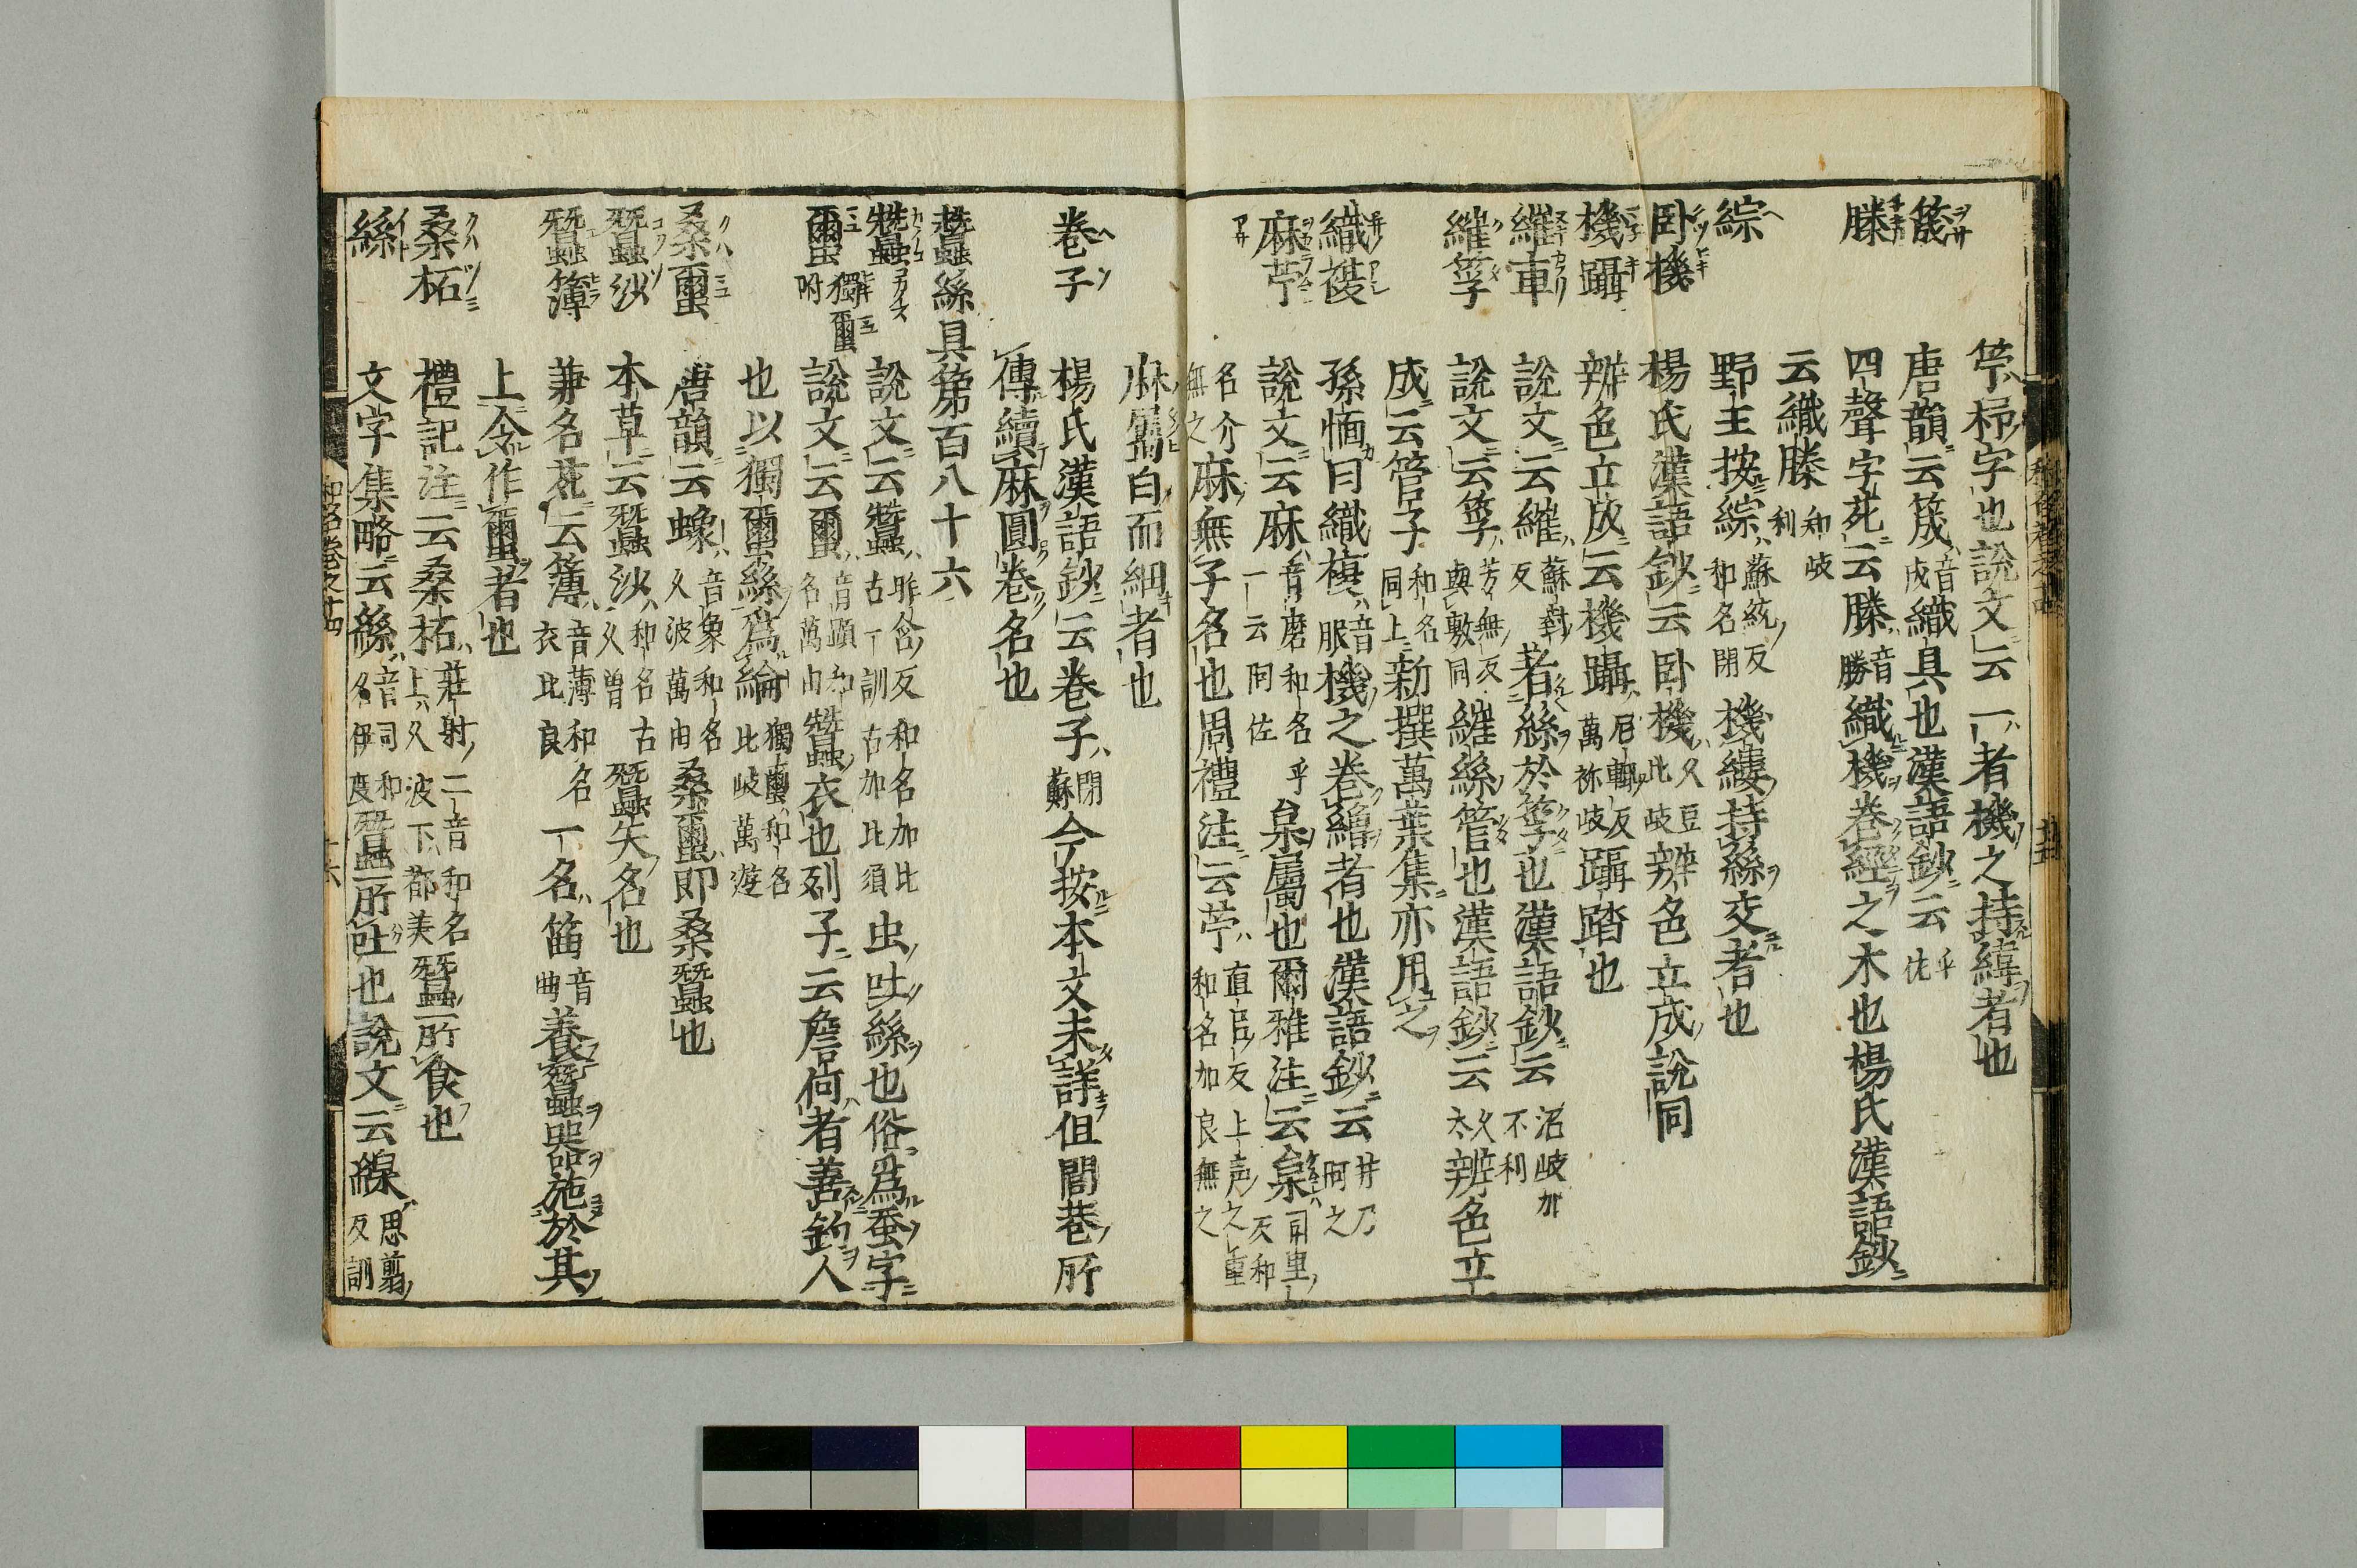 竺杼字也說文云一者機之持緯者也
筬 唐韻云筬音成織具也漢語鈔云乎佐
縢 四聲字苑云縢音勝織機卷經之木也楊氏漢語鈔
云織縢和岐利
綜 野王按綜蘇統反和名閉機縷持絲交者也
卧機 楊氏漢語鈔云卧機久豆比岐辨色立成說同
機躡 辨色立成云機躡尼輒反萬袮岐躡踏也
維車 說文云維蘇對反者絲於筟也漢語鈔云沼岐加不利
維筟 說文云筟芳無反與敷同維絲管也漢語鈔云久太辨色立
成云管子和名同上新撰萬葉集亦用之
織複 孫愐曰織複音服機之卷繒者也漢語鈔云井乃阿之
麻苧 說文云麻音磨和名乎一云阿佐枲屬也爾雅注云枲司里反和
名介無之麻無子名也周禮注云苧直呂反上声之重和名加良無之
麻屬白而細者也
卷子 楊氏漢語鈔云卷子閉蘇今按本文未詳但閭巷所
傳續麻圓卷名也
蠶絲具第百八十六
蠶 說文云蠶昨含反和名加比古一訓古加比須虫吐絲也俗爲蚕字
蠒 獨蠒附 說文云蠒音顕和名萬由蠶衣也列子云詹何者善釣人
也以獨蠒絲爲綸獨蠒和名比岐萬遊
桑蠒 唐韻云蟓音象和名久波萬由桑蠒即桑蠶也
蠶沙 本草云蠶沙和名古久曽蠶矢名也
蠶簿 兼名苑云簿音薄和名衣比良一名笛音曲養蠶器施於其
上令作蠒者也
桑柘 禮記注云桑柘莊射二音和名上久波下都美蠶所食也
絲 文字集略云絲音司和名伊度蠶所吐也說文云線思翦反訓